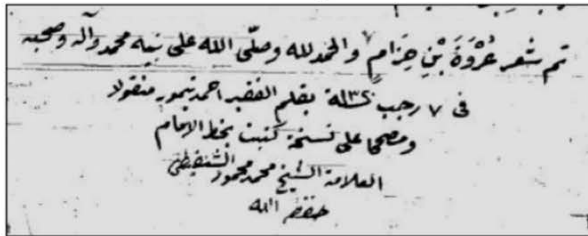 تم شعر عُرْوَةَ بْنِ حِزَامٍ والحمد لله وصلّى الله على نبيه محمد وآله وصحبه
فى ٧ رجب سنة ١٣٢٠ بقلم الفقير احمد تيمور منقولا
ومصححا على نسخة كتبت بخط الامام
العلامة الشيخ محمد محمود الشنقيطى
حفظه الله